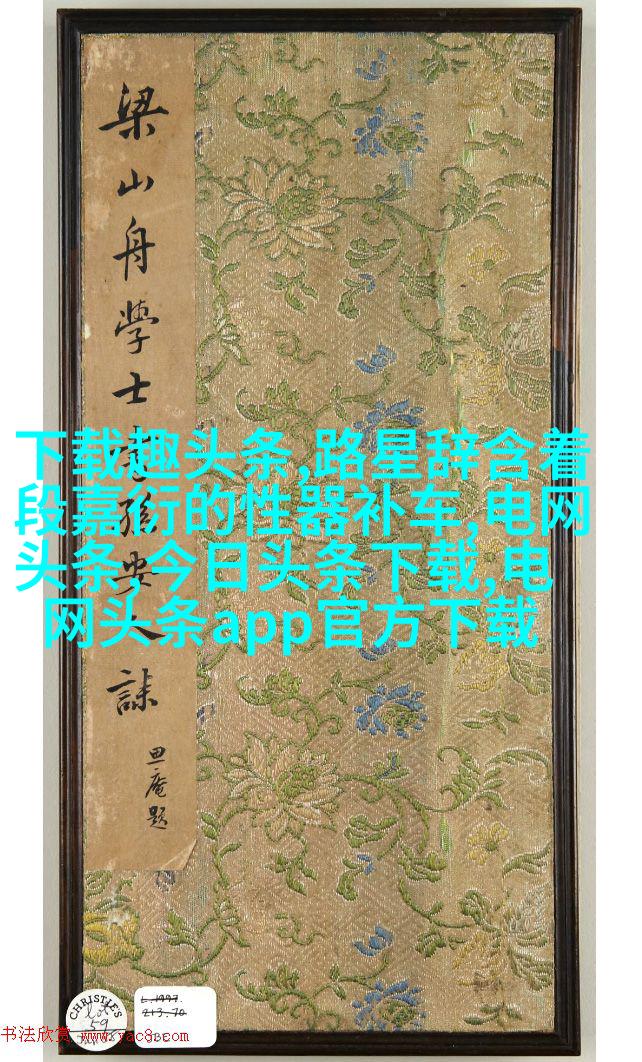 梁山舟學士書孫安人誄
思庵題
下载趣头条,路星辞含着
段嘉衍的性器补车,电网
头条,今日头条下载,电
网头条app官方下载
CHRISTIE'S
Lot
59
L.1997.
213.70
书法欣赏 www.yac8.com